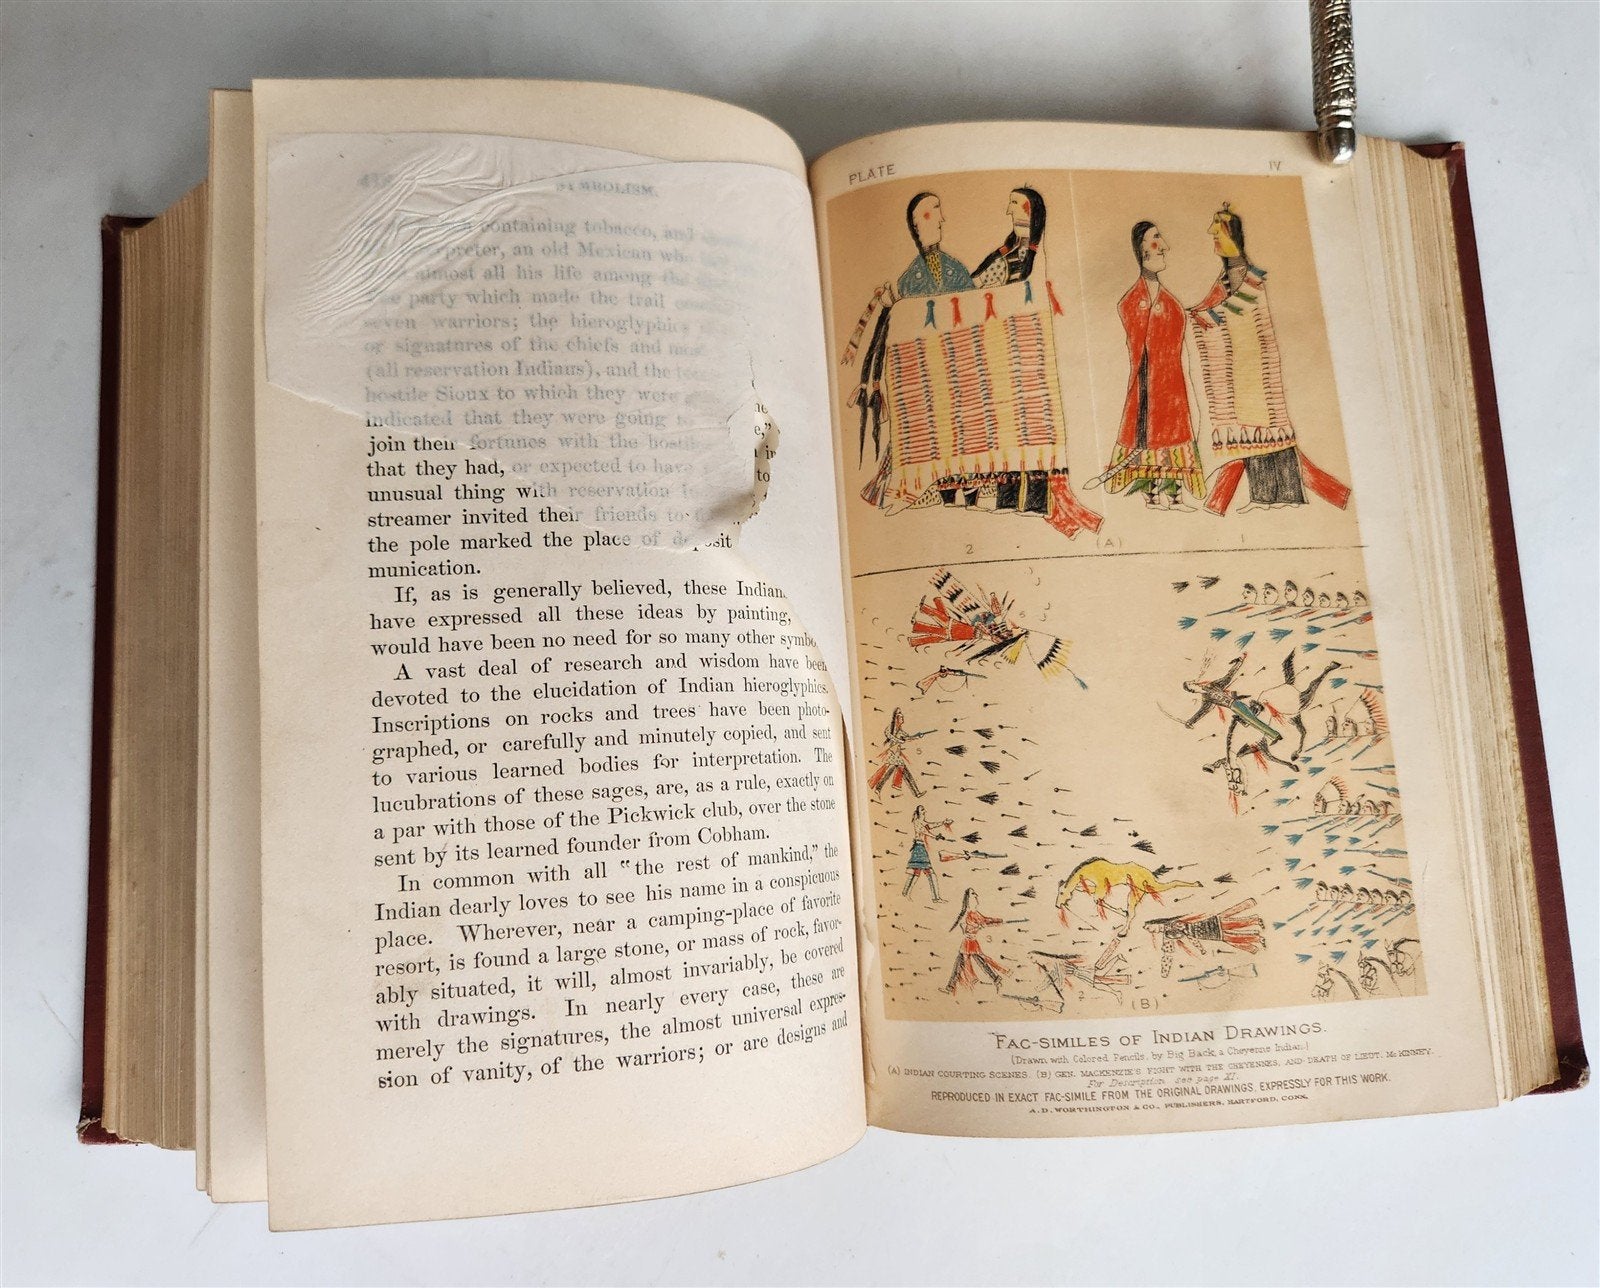 SYMBOLISM.
containing tobacco, and
an old Mexican
almost all his life among the
party which made the trail
seven warriors; the hieroglyphics
or signatures of the chiefs and
(all reservation Indians), and the
hostile Sioux to which they were
indicated that they were going
join their fortunes with the
that they had, or expected to have
unusual thing with reservation
streamer invited their friends to
the pole marked the place of deposit
munication.
If, as is generally believed, these
have expressed all these ideas by painting,
would have been no need for so many other
A vast deal of research and wisdom have been
devoted to the elucidation of Indian hieroglyphics.
Inscriptions on rocks and trees have been photo-
graphed, or carefully and minutely copied, and sent
to various learned bodies for interpretation. The
lucubrations of these sages, are, as a rule, exactly on
a par with those of the Pickwick club, over the stone
sent by its learned founder from Cobham.
In common with all "the rest of mankind," the
Indian dearly loves to see his name in a conspicuous
place. Wherever, near a camping-place of favorite
resort, is found a large stone, or mass of rock, favor-
ably situated, it will, almost invariably, be covered
with drawings. In nearly every case, these are
merely the signatures, the almost universal expres-
sion of vanity, of the warriors; or are designs and
PLATE IV
2 (A) 1
5
4
3
2 (B)
FAC-SIMILES OF INDIAN DRAWINGS.
(Drawn with Colored Pencils, by Big Back, a Cheyenne Indian.)
(A) INDIAN COURTING SCENES. (B) GEN. MACKENZIE'S FIGHT WITH THE CHEYENNES, AND DEATH OF LIEUT. McKINNEY.
For Description see page XI.
REPRODUCED IN EXACT FAC-SIMILE FROM THE ORIGINAL DRAWINGS, EXPRESSLY FOR THIS WORK.
A. D. WORTHINGTON & CO., PUBLISHERS, HARTFORD, CONN.